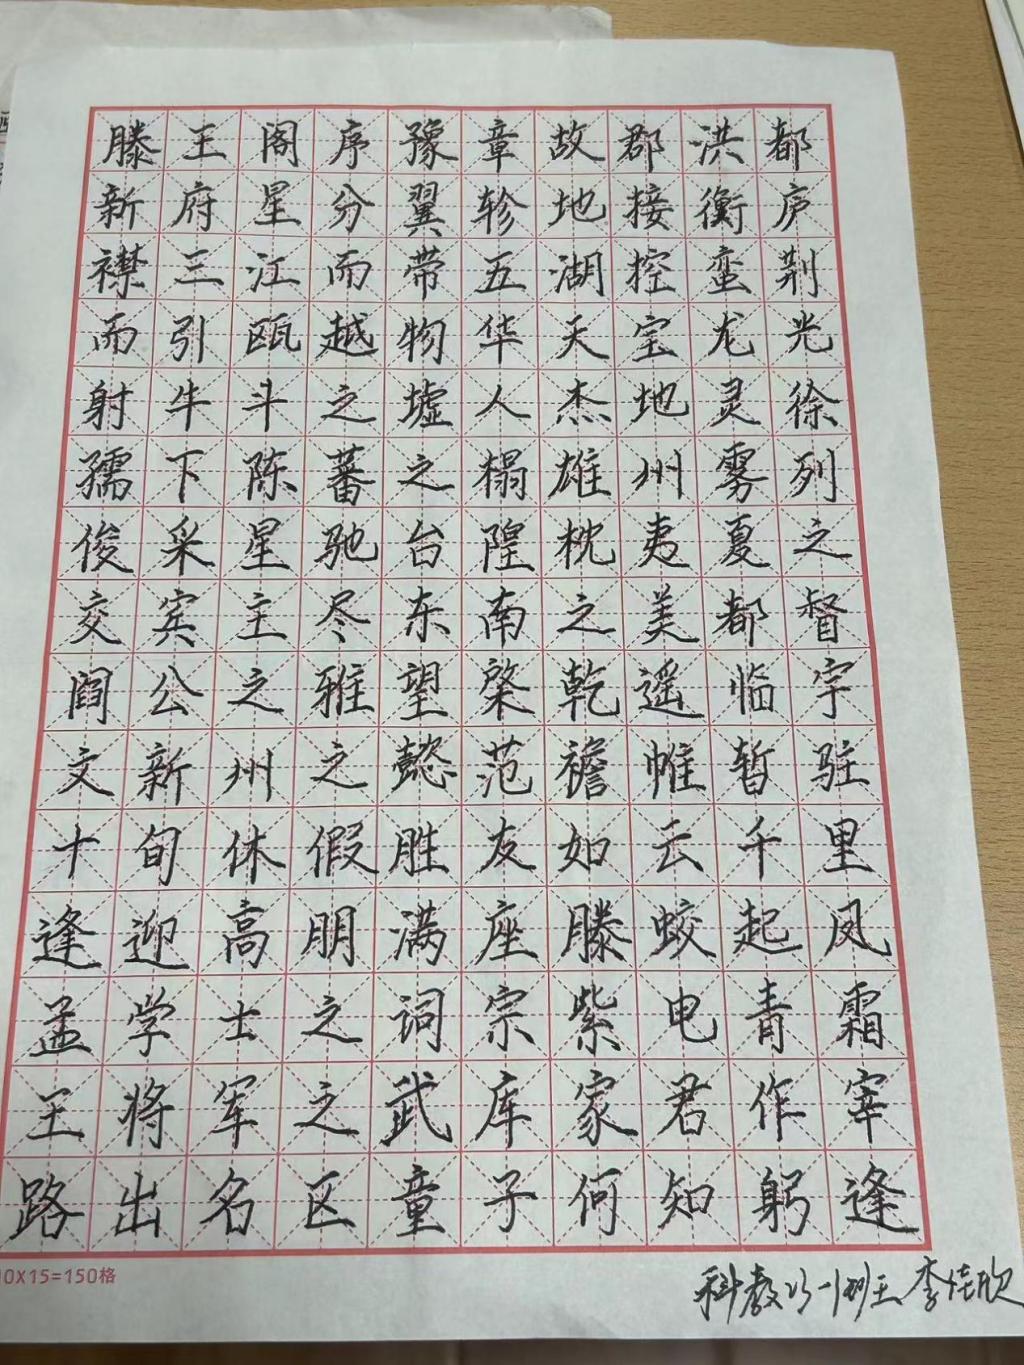 滕王阁序豫章故郡洪都
新府星分翼轸地接衡庐
襟三江而带五湖控蛮荆
而引瓯越物华天宝龙光
射牛斗之墟人杰地灵徐
孺下陈蕃之榻雄州雾列
俊采星驰台隍枕夷夏之
交宾主尽东南之美都督
阎公之雅望棨乾遥临宇
文新州之懿范襜帷暂驻
十旬休假胜友如云千里
逢迎高朋满座滕蛟起凤
孟学士之词宗紫电青霜
王将军之武库家君作宰
路出名区童子何知躬逢
10X15=150格
科教
李佳欣